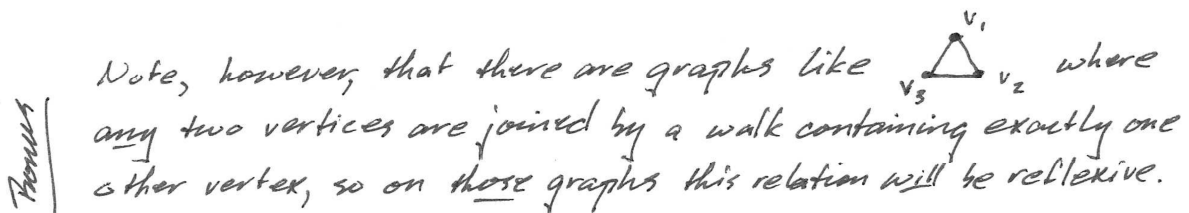 Note, however, that there are graphs like v₁ v₃ v₂ where
any two vertices are joined by a walk containing exactly one
other vertex, so on those graphs this relation will be reflexive.